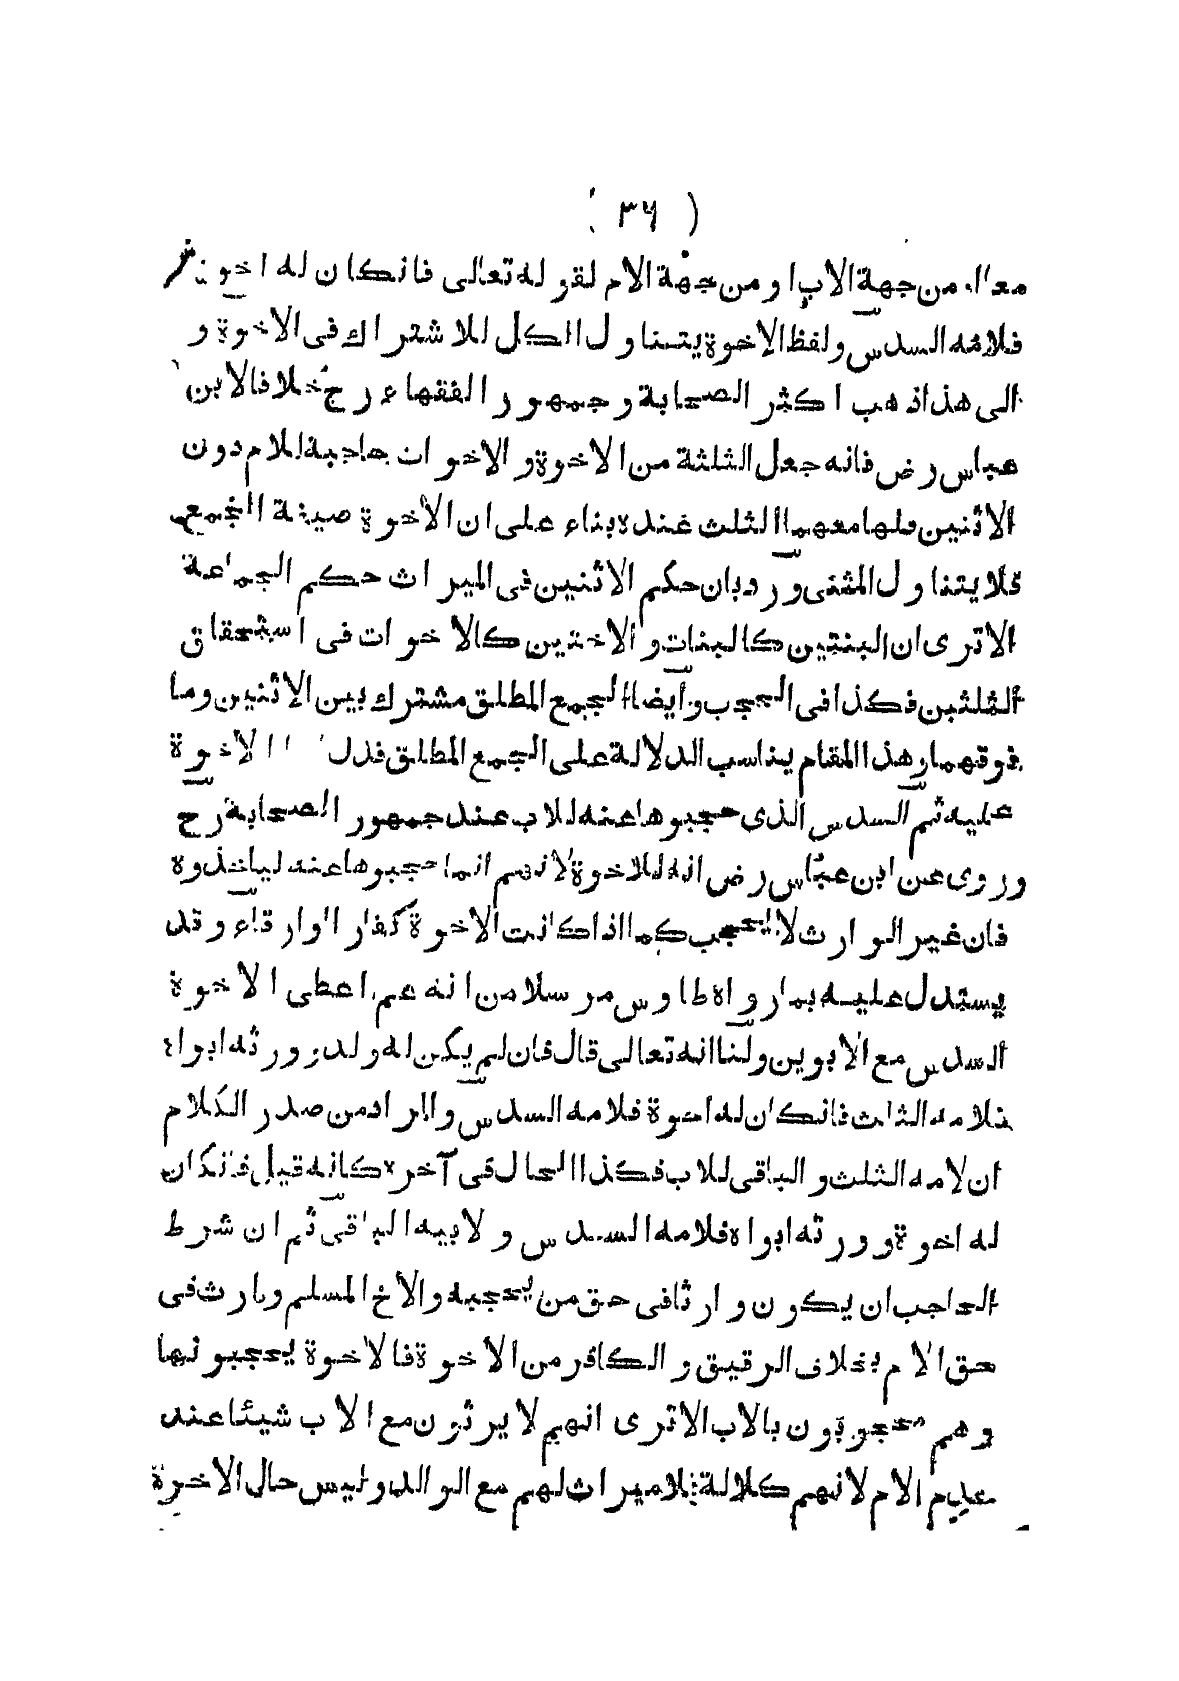 ( ٣٦ )
معا او من جهة الاب او من جهة الام لقوله تعالى فان كان له اخوة
فلامه السدس ولفظ الاخوة يتناول الكل للاشتراك فى الاخوة و
الى هذا ذهب اكثر الصحابة وجمهور الفقهاء رح خلافا لابن
عباس رض فانه جعل الثلثة من الاخوة والاخوات حاجبة للام دون
الاثنين فلها معهما الثلث عنده بناء على ان الاخوة صيغة الجمع
فلا يتناول المثنى ورد بان حكم الاثنين فى الميراث حكم الجماعة
الا ترى ان البنتين كالبنات والاختين كالاخوات فى استحقاق
الثلثين فكذا فى الحجب وأيضا الجمع المطلق مشترك بين الاثنين وما
فوقهما وهذا المقام يناسب الدلالة على الجمع المطلق فدل الاخوة
عليه ثم السدس الذى حجبوها عنه للاب عند جمهور الصحابة رح
وروى عن ابن عباس رض انه للاخوة لانهم انما حجبوها عنه لياخذوه
فان غير الوارث لا يحجب كما اذا كانت الاخوة كفارا او ارقاء وقد
يستدل عليه بما رواه طاوس مرسلا من انه عم اعطى الاخوة
السدس مع الابوين ولنا انه تعالى قال فان لم يكن له ولد وورثه ابواه
فلامه الثلث فان كان له اخوة فلامه السدس والمراد من صدر الكلام
ان لامه الثلث والباقى للاب فكذا الحال فى آخره كانه قيل فان كان
له اخوة وورثه ابواه فلامه السدس ولابيه الباقى ثم ان شرط
الحاجب ان يكون وارثا فى حق من يحجبه والأخ المسلم وارث فى
حق الام بخلاف الرقيق والكافر من الاخوة فالاخوة يحجبونها
وهم محجوبون بالاب الا ترى انهم لا يرثون مع الاب شيئا عند
عدم الام لانهم كلالة فلا ميراث لهم مع الوالد وليس حال الاخوة